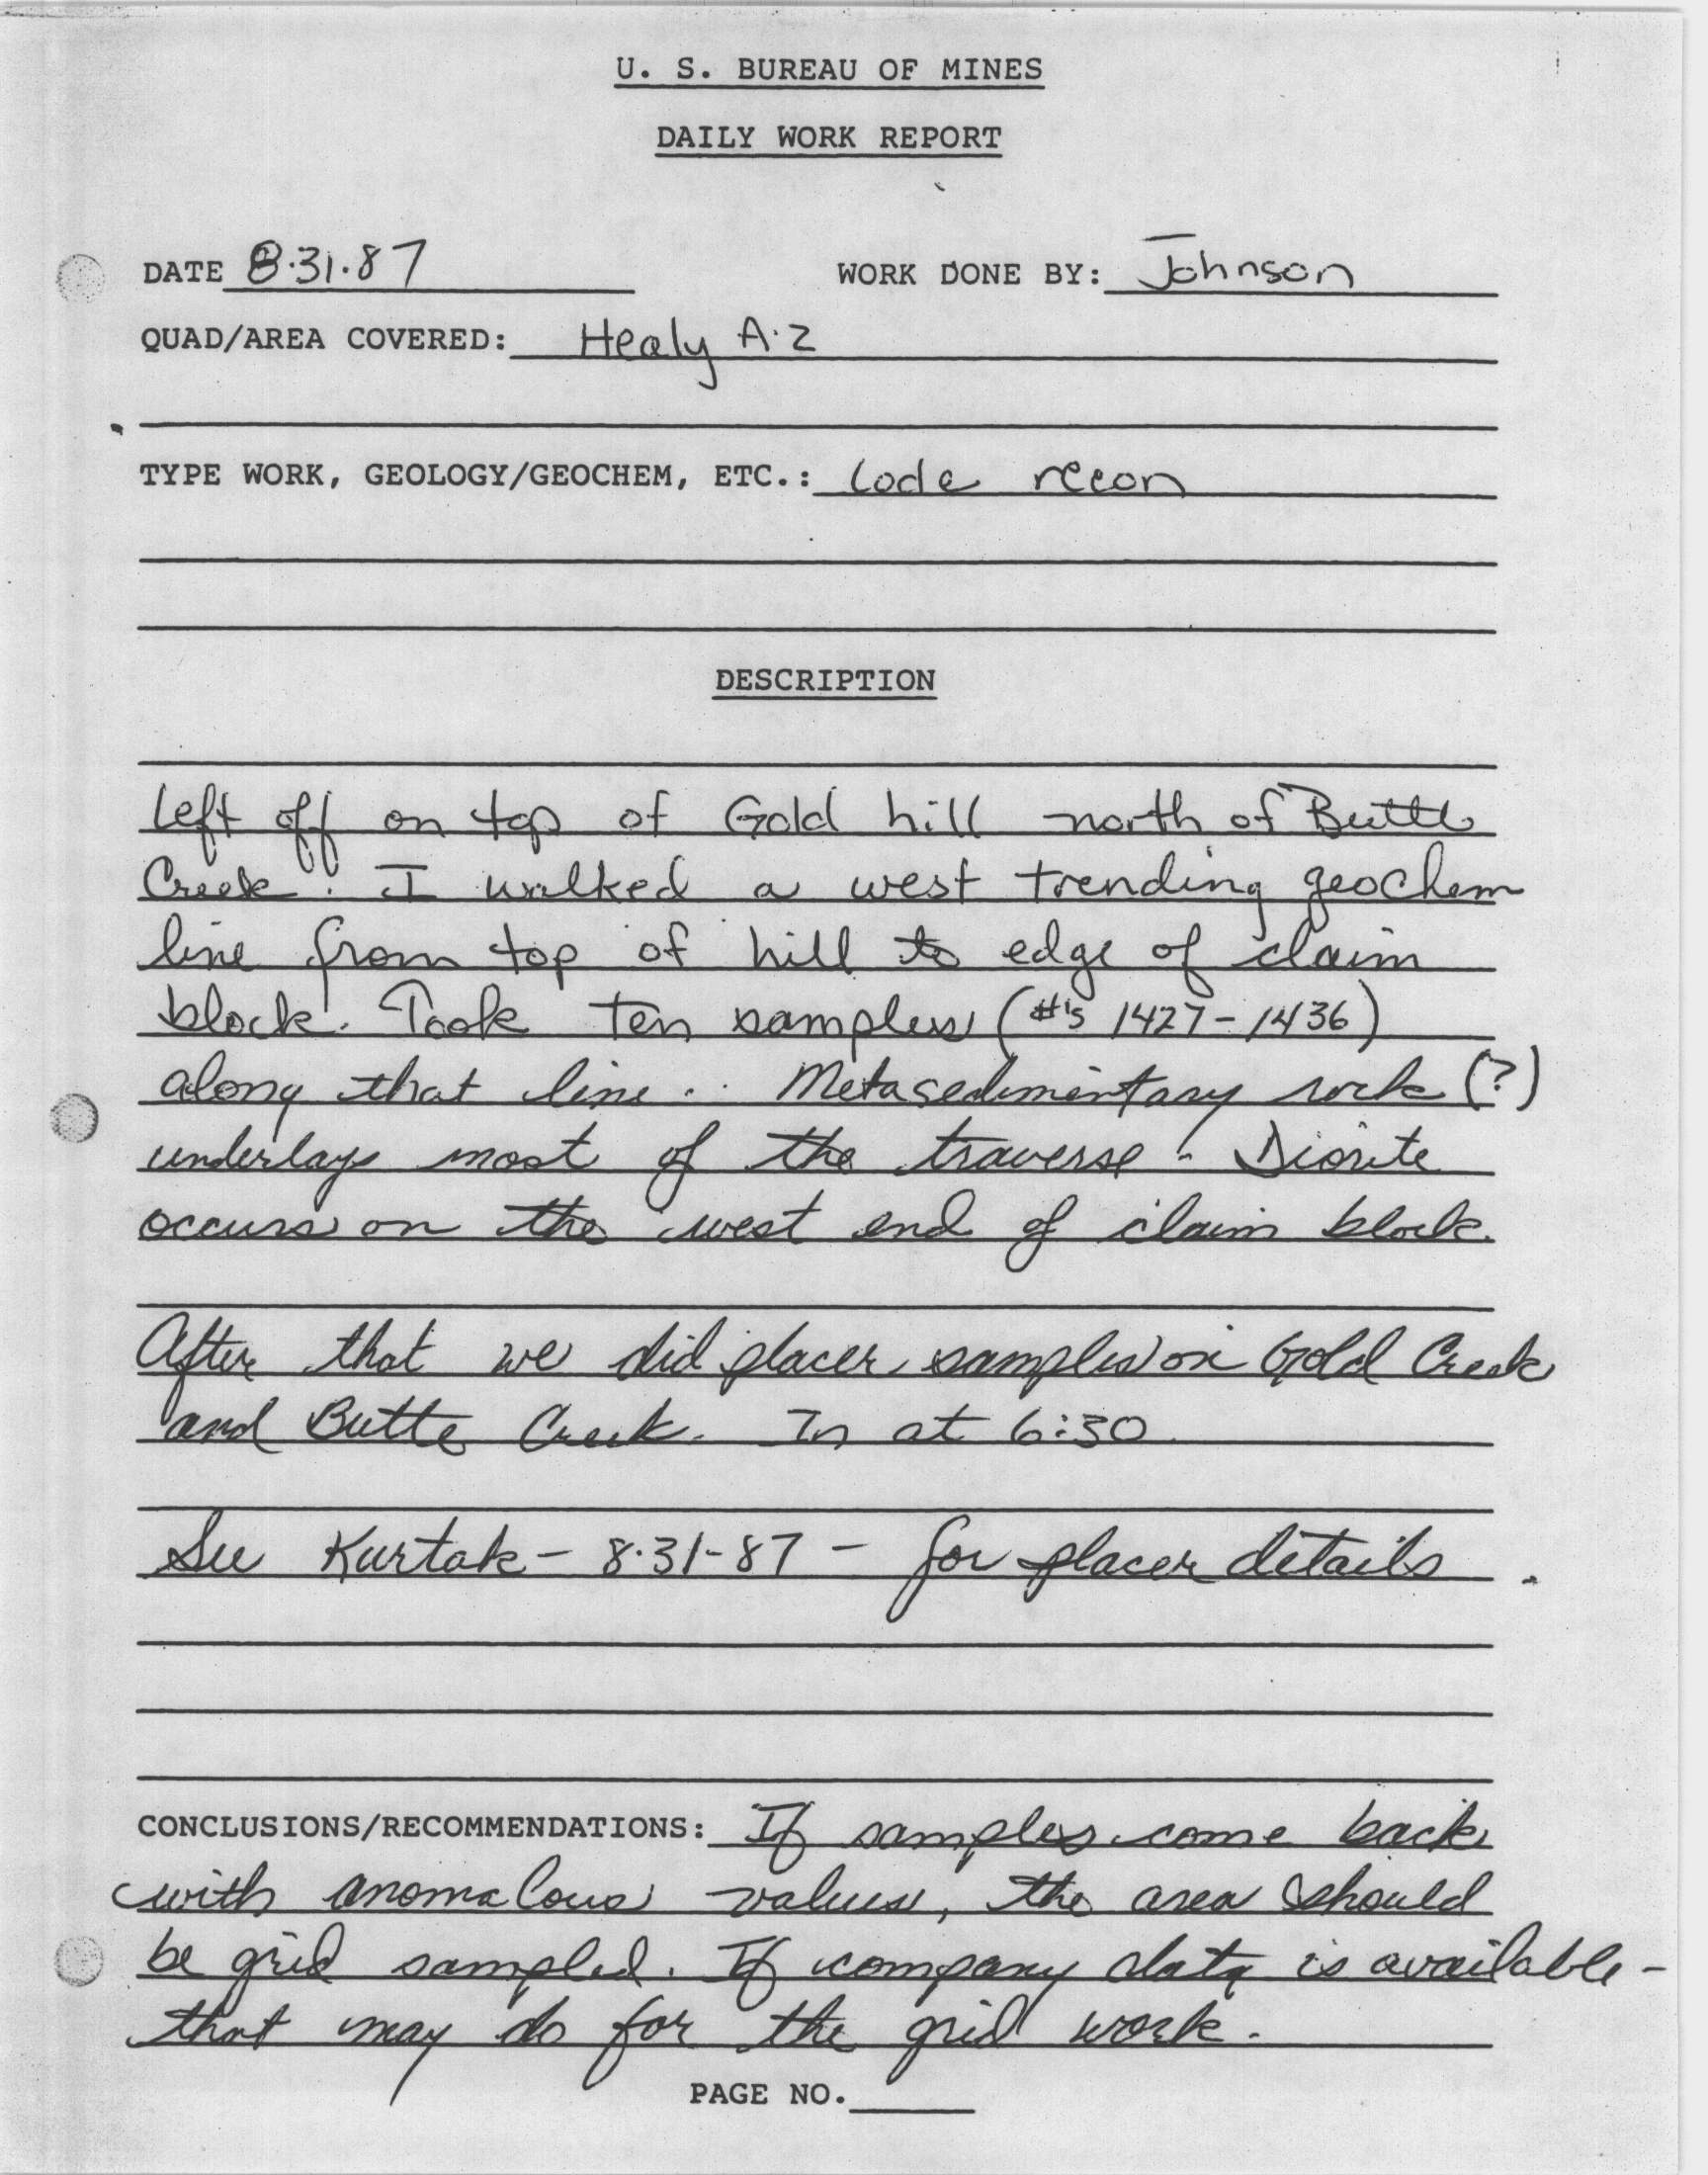 U. S. BUREAU OF MINES
DAILY WORK REPORT
DATE 8·31·87 WORK DONE BY: Johnson
QUAD/AREA COVERED: Healy A·2
TYPE WORK, GEOLOGY/GEOCHEM, ETC.: lode recon
DESCRIPTION
left off on top of Gold hill north of Butte
Creek. I walked a west trending geochem
line from top of hill to edge of claim
block. Took ten samples (#'s 1427-1436)
along that line. Metasedimentary rock (?)
underlays most of the traverse. Diorite
occurs on the west end of claim block.
After that we did placer samples on Gold Creek
and Butte Creek. In at 6:30
See Kurtak - 8·31-87 - for placer details.
CONCLUSIONS/RECOMMENDATIONS: If samples come back
with anomalous values, the area should
be grid sampled. If company data is available -
that may do for the grid work.
PAGE NO.